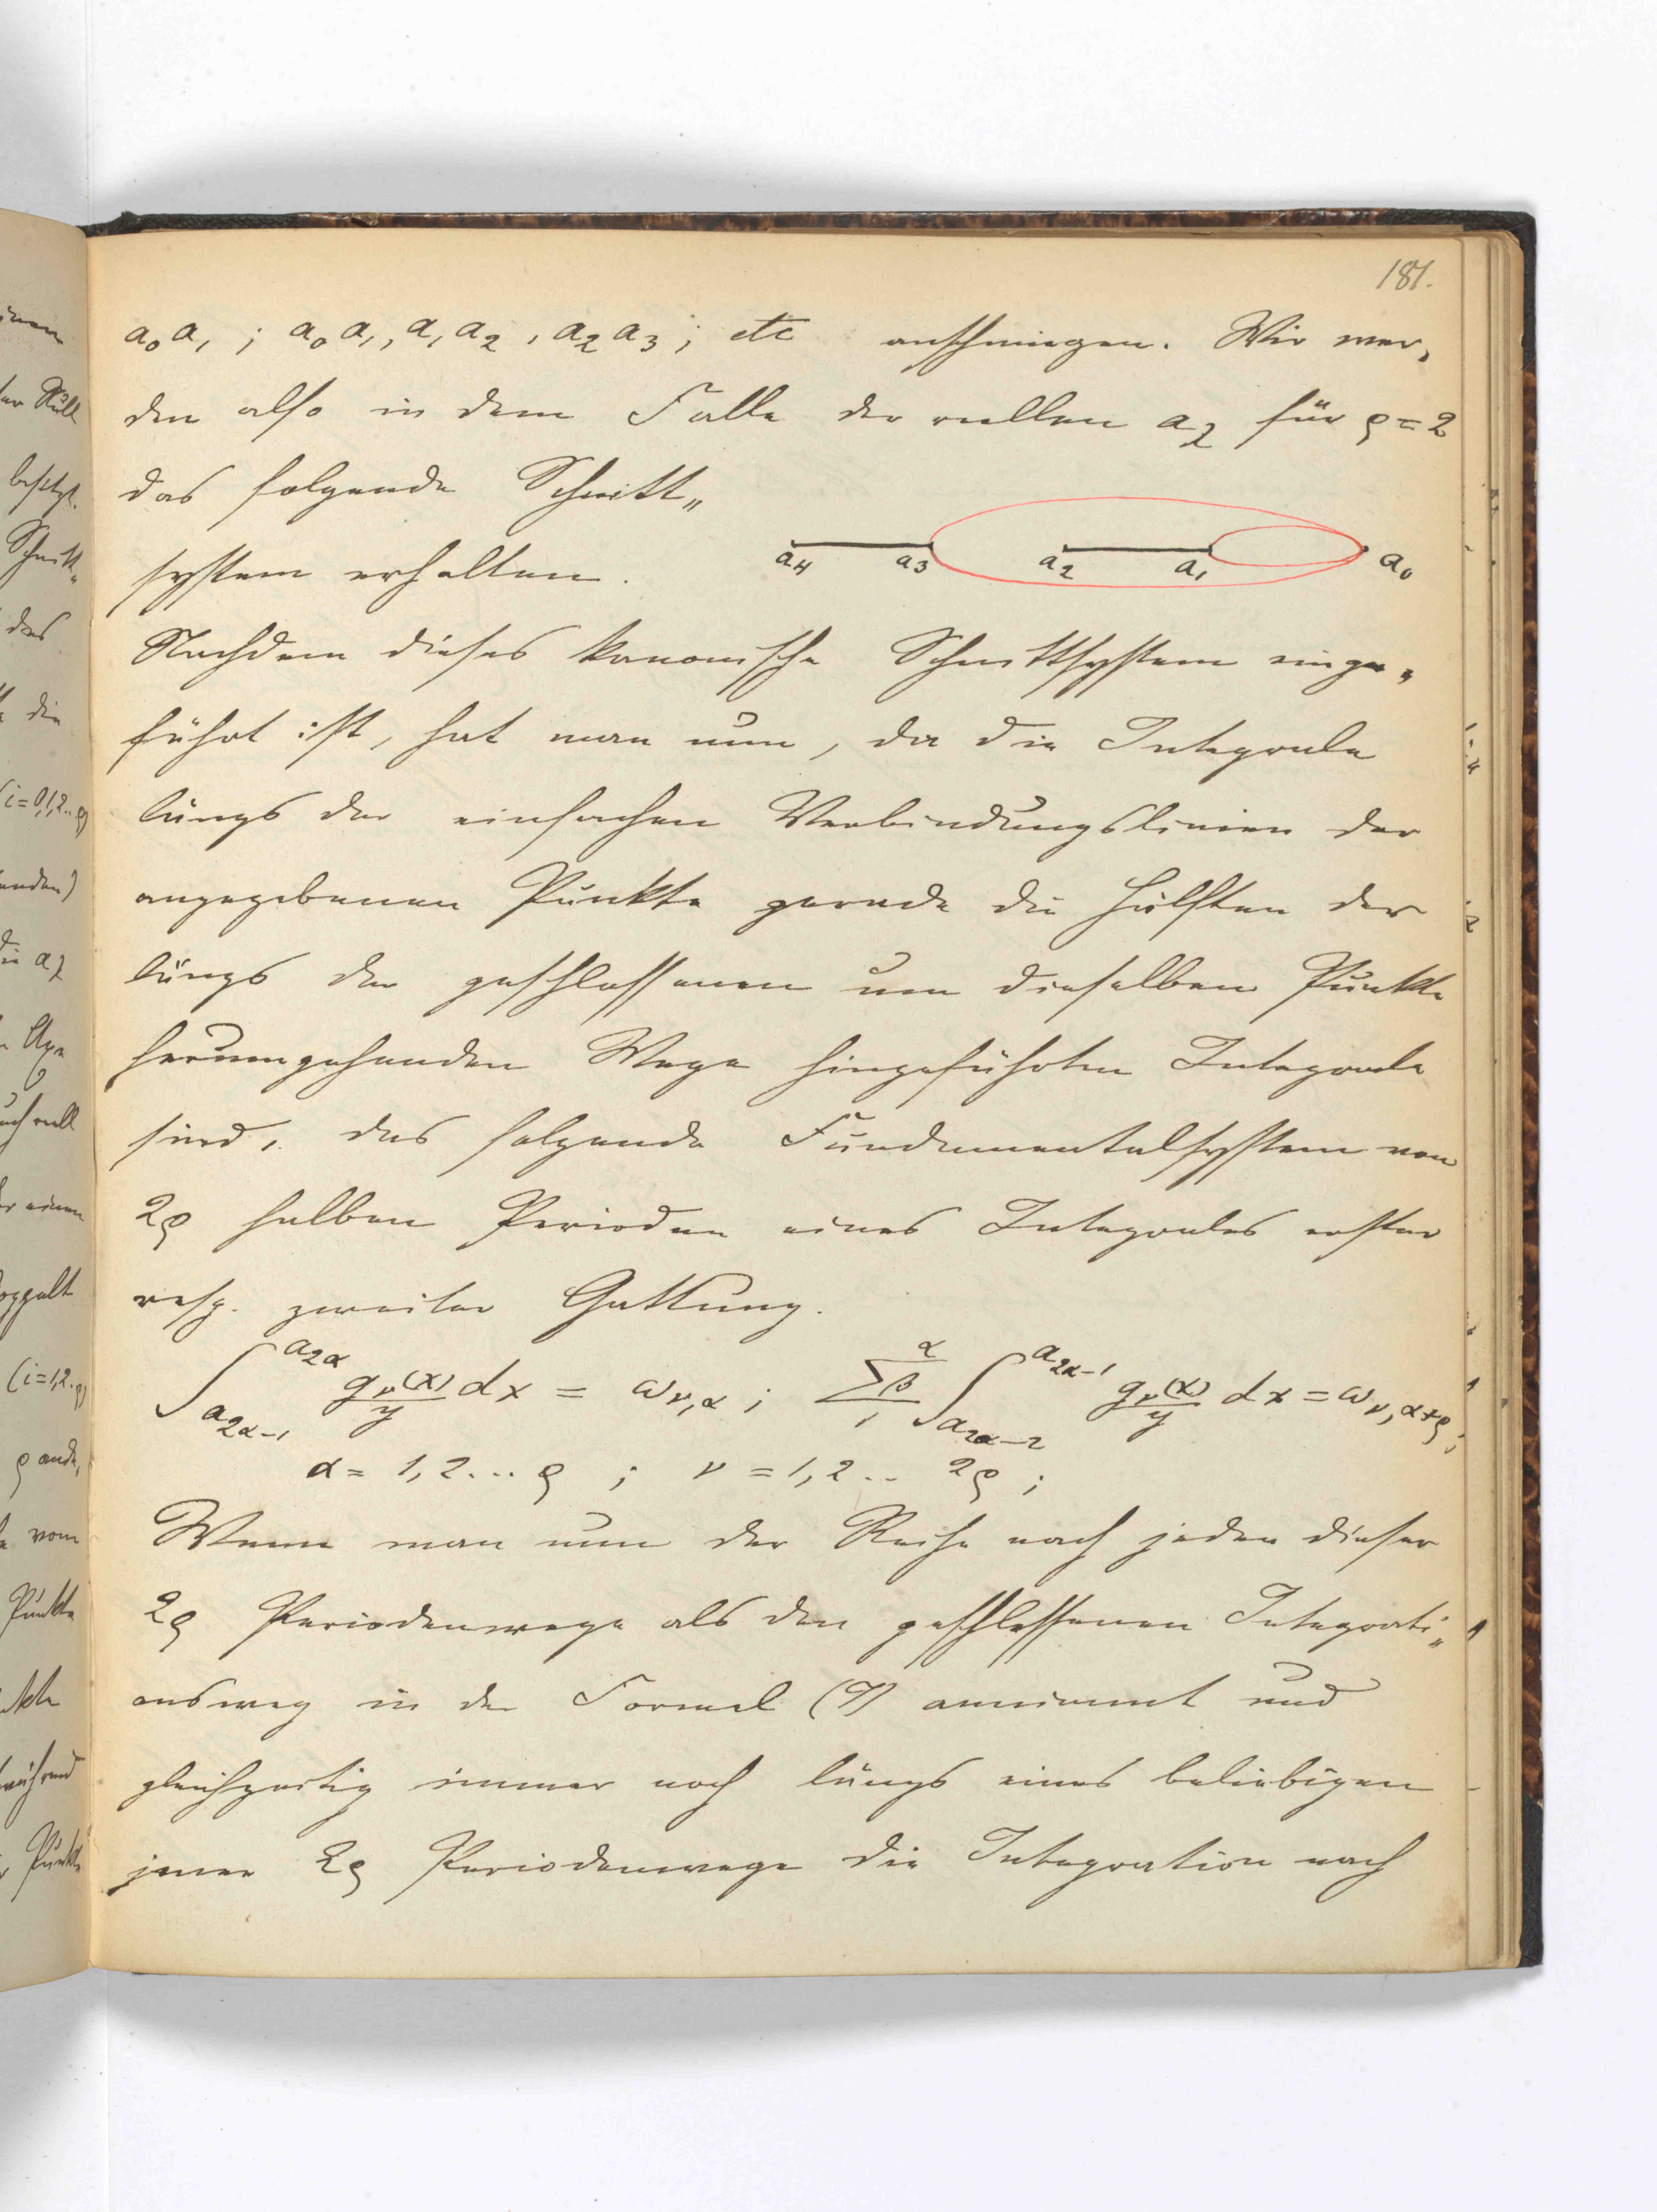 181.
a₀a₁ ; a₀a₁, a₁a₂, a₂a₃ ; etc anschmiegen. Wir wer„
den also in dem Falle der reellen a_λ für ρ=2
das folgende Schnitt„
system erhalten.
a₄ a₃ a₂ a₁ a₀
Nachdem dieses kanonische Schnittsystem einge„
führt ist, hat man nun, da die Integrale
längs der einfachen Verbindungslinien der
angegebenen Punkte gerade die Hälften der
längs der geschlossenen um dieselben Punkte
herumgehenden Wege hingeführten Integrale
sind, das folgende Fundamentalsystem von
2ρ halben Perioden eines Integrales erster
resp. zweiter Gattung.
∫_{a_{2α-1}}^{a_{2α}} g_ν(x)/y dx = ω_{ν,α} ; Σ_{1}^{α}β ∫_{a_{2α-2}}^{a_{2α-1}} g_ν(x)/y dx = ω_{ν,α+ρ} ;
α = 1,2...ρ ; ν = 1,2.. 2ρ ;
Wenn man nun der Reihe nach jeden dieser
2ρ Periodenwege als den geschlossenen Integrati„
onsweg in der Formel annimmt und
gleichzeitig immer noch längs eines beliebigen
jener 2ρ Periodenwege die Integration nach
der Null
besitzt.
Schnitt„
das
die
(i=0,1,2..ρ)
die a_λ
einen
doppelt
(i=1,2..ρ)
vom
Punkte
während
Punkte